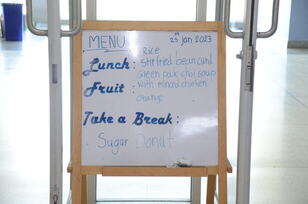 MENU
25th Jan 2023
Rice
Lunch : Stirfried bean curd
Green pak choi soup
Fruit : with minced chicken
orange
Take a Break :
Sugar Donut